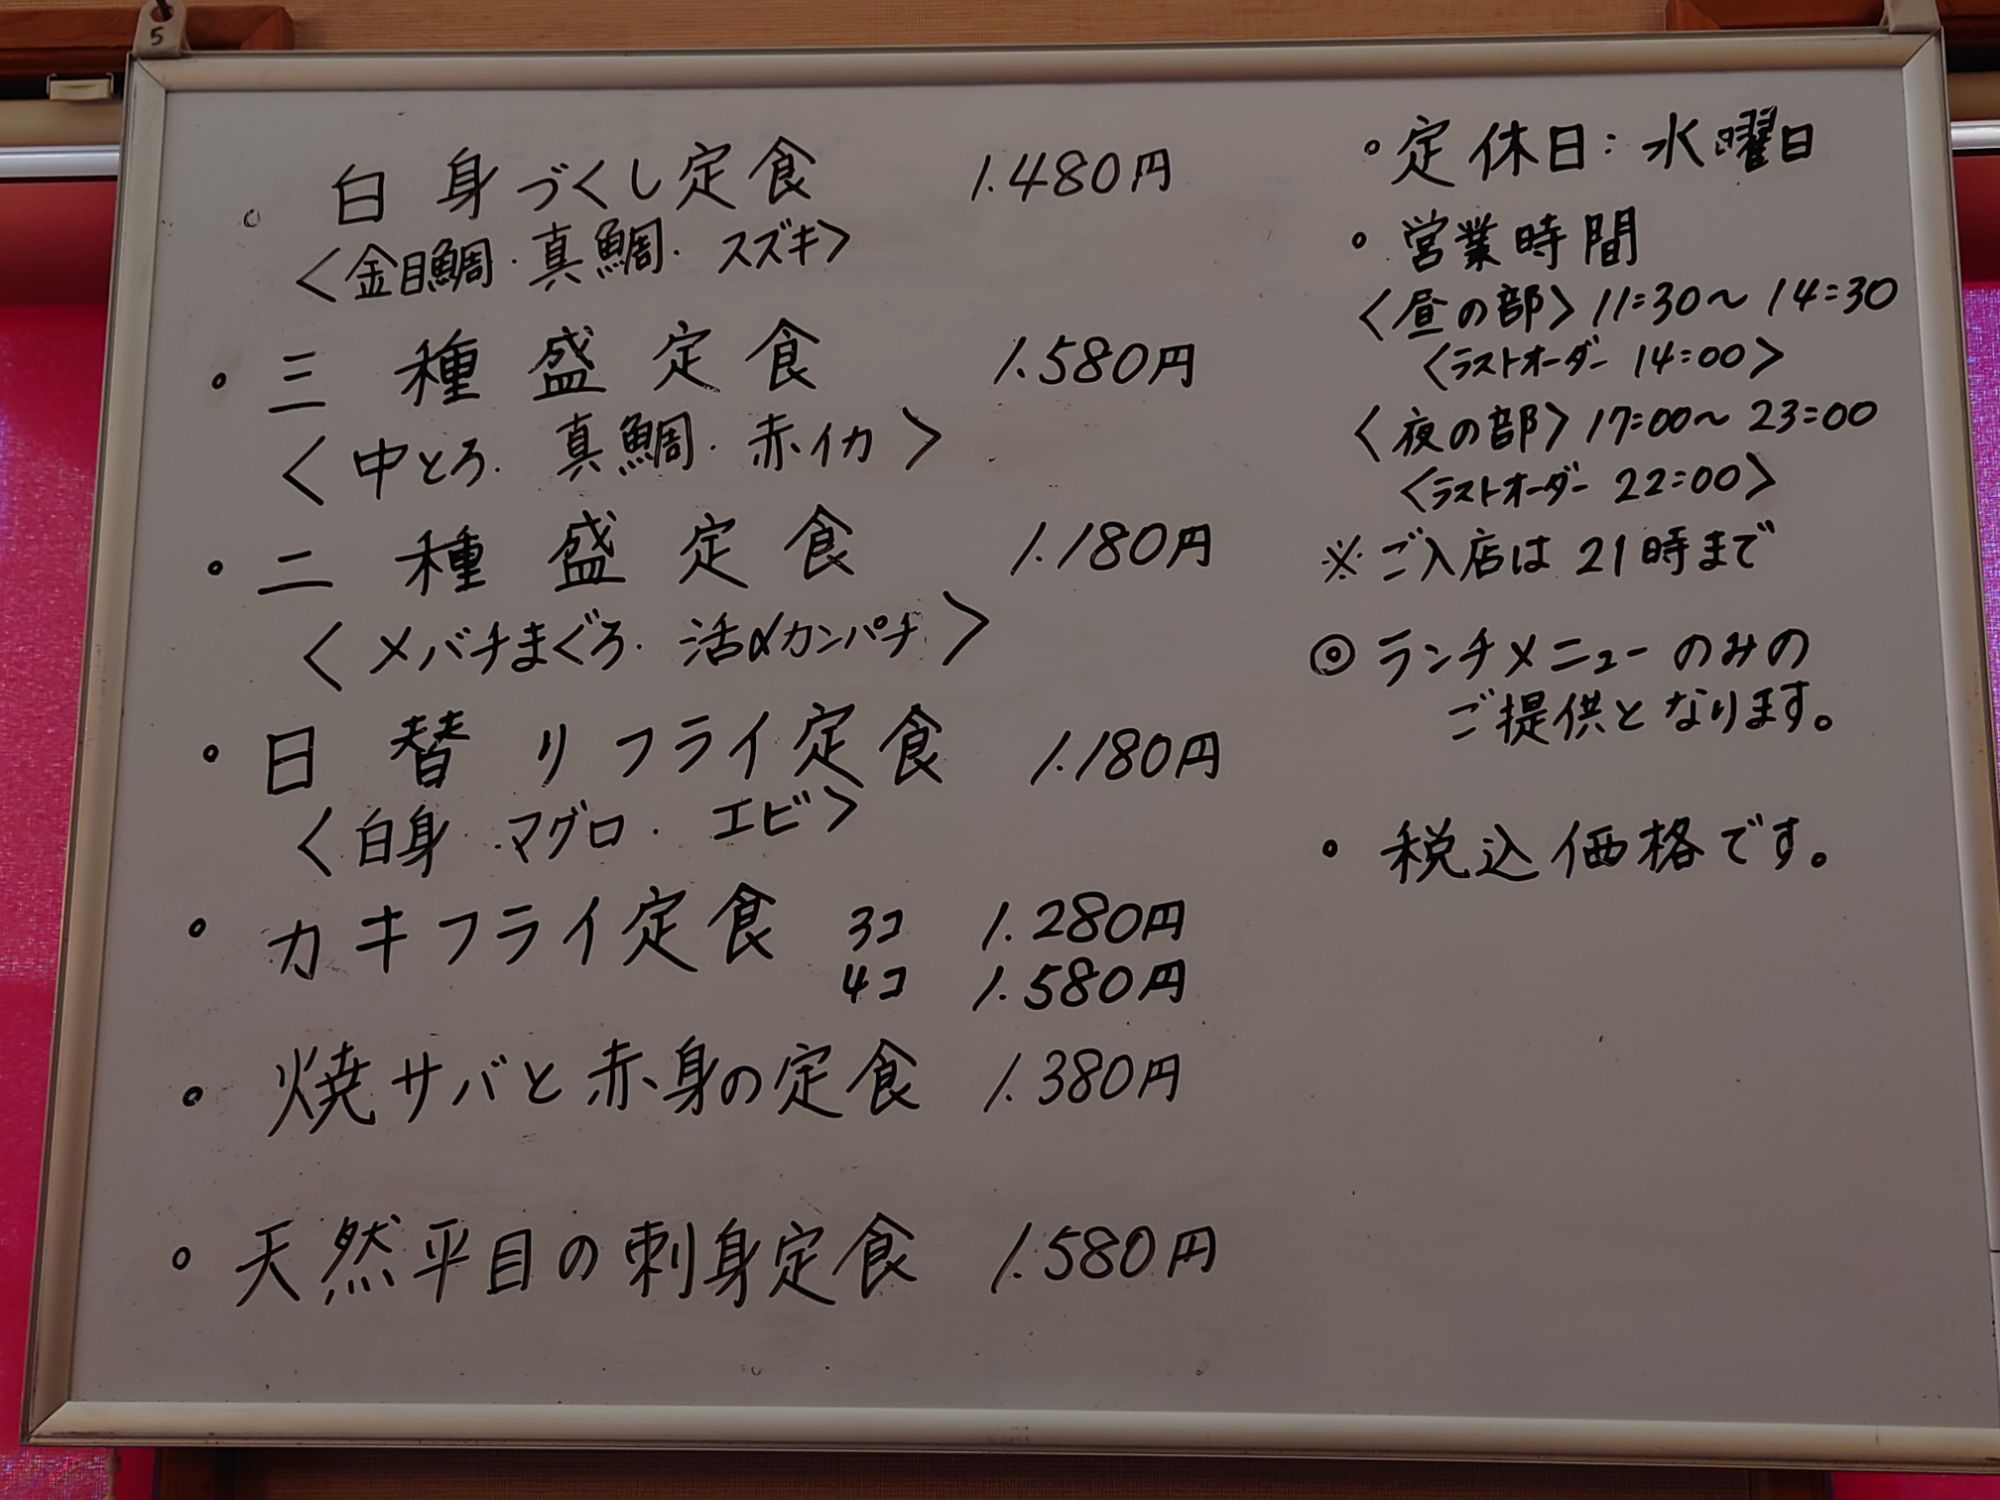 。白身づくし定食 1.480円
<金目鯛・真鯛・スズキ>
・三種盛定食 1.580円
<中とろ・真鯛・赤イカ>
・二種盛定食 1.180円
<メバチまぐろ・活〆カンパチ>
・日替りフライ定食 1.180円
<白身・マグロ・エビ>
・カキフライ定食 3コ 1.280円
4コ 1.580円
・焼サバと赤身の定食 1.380円
・天然平目の刺身定食 1.580円
・定休日:水曜日
・営業時間
<昼の部> 11:30〜14:30
<ラストオーダー 14:00>
<夜の部> 17:00〜23:00
<ラストオーダー 22:00>
※ご入店は21時まで
◎ランチメニューのみの
ご提供となります。
・税込価格です。
5